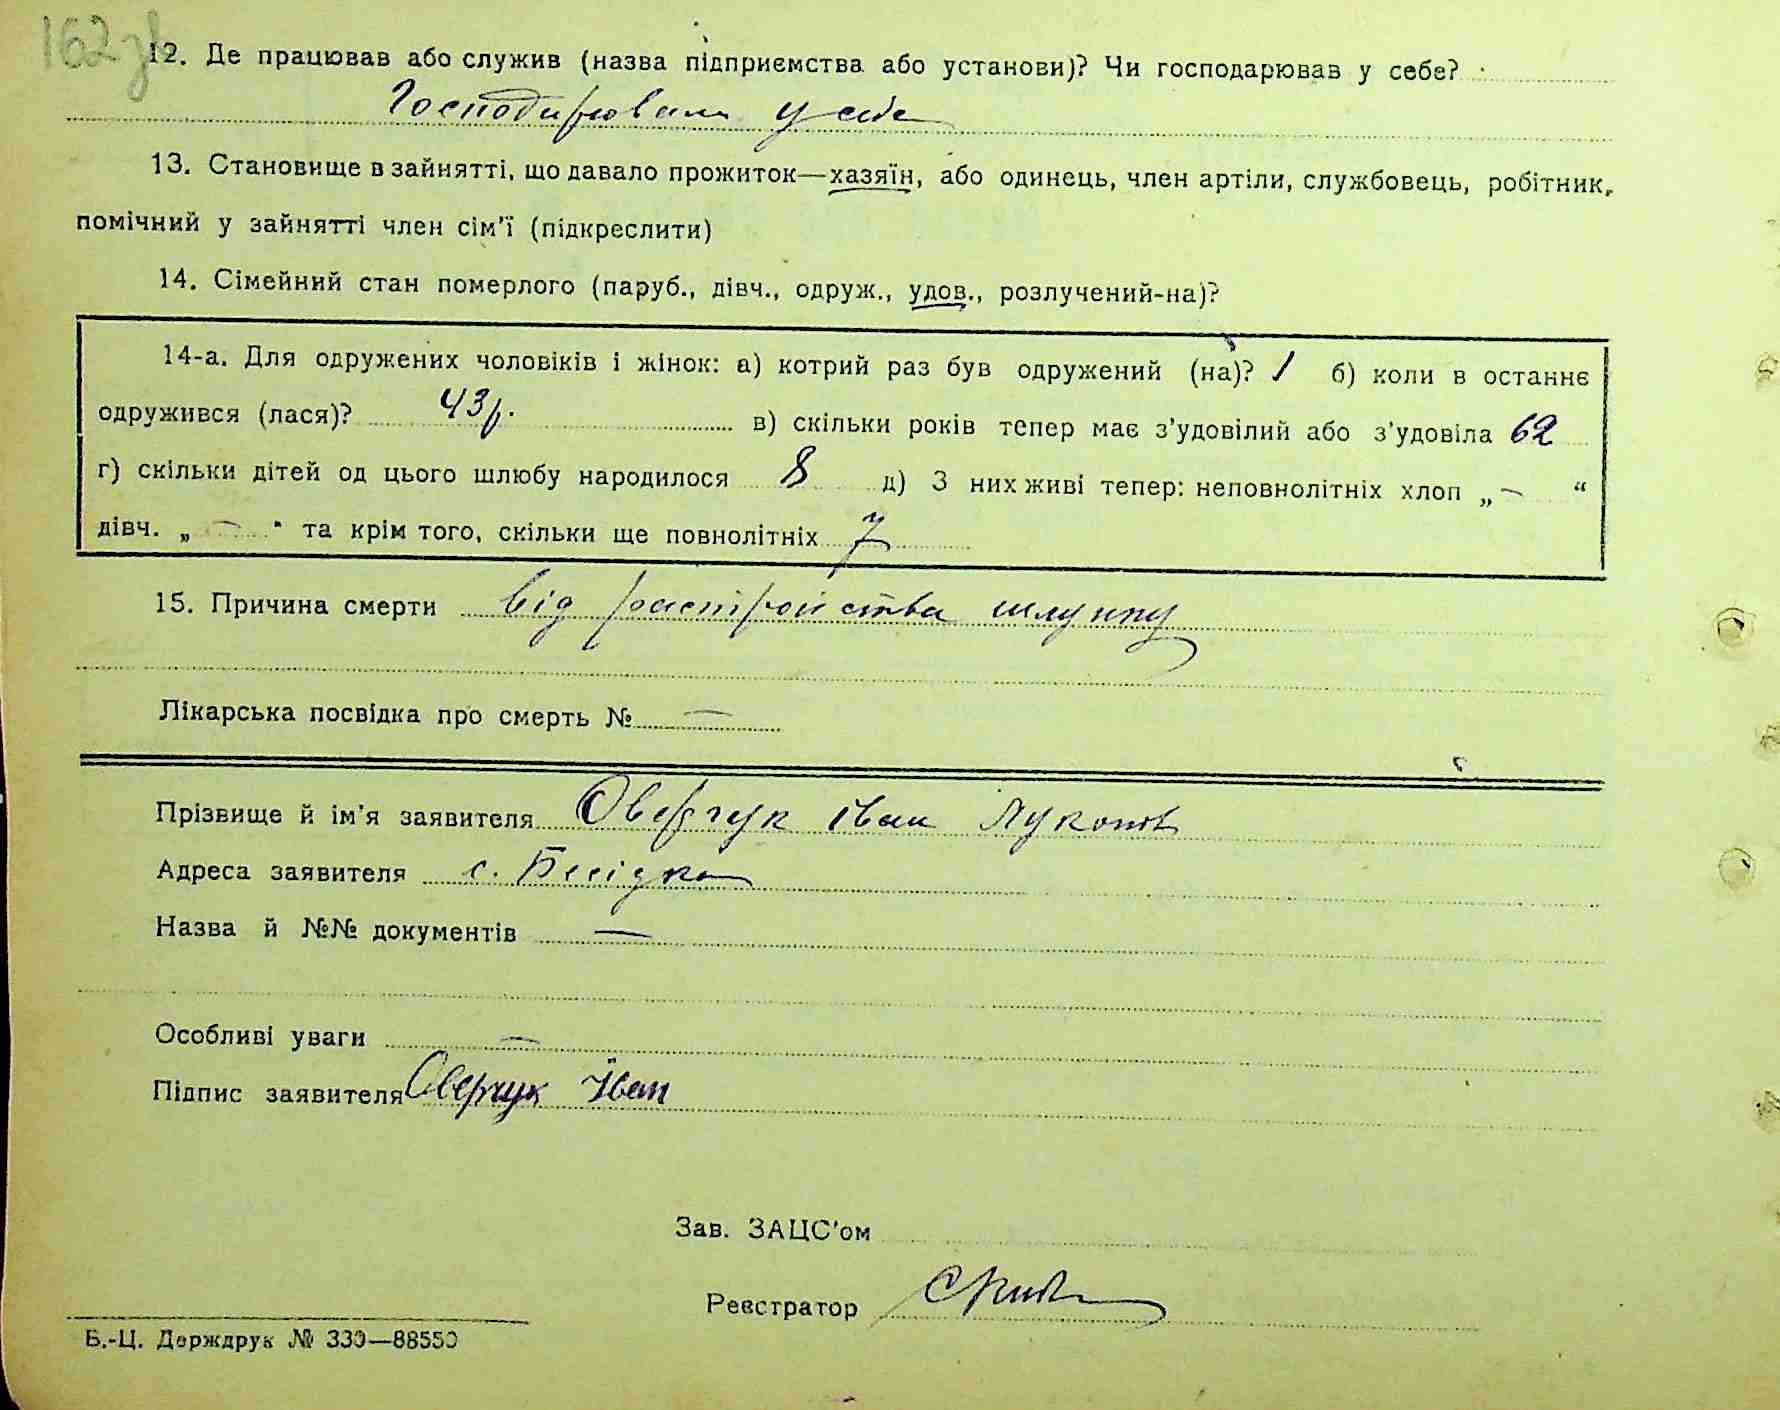 162 зв
12. Де працював або служив (назва підприємства або установи)? Чи господарював у себе?
Господарювала у себе
13. Становище в зайнятті, що давало прожиток—хазяїн, або одинець, член артіли, службовець, робітник,
помічний у зайнятті член сім'ї (підкреслити)
14. Сімейний стан померлого (паруб., дівч., одруж., удов., розлучений-на)?
14-а. Для одружених чоловіків і жінок: а) котрий раз був одружений (на)? 1 б) коли в останнє
одружився (лася)? 43 р. в) скільки років тепер має з'удовілий або з'удовіла 62
г) скільки дітей од цього шлюбу народилося 8 д) З них живі тепер: неповнолітніх хлоп „ — “
дівч. „ — “ та крім того, скільки ще повнолітніх 7
15. Причина смерти від растройства шлунку
Лікарська посвідка про смерть № —
Прізвище й ім'я заявителя Оверчук Іван Лукович
Адреса заявителя с. Бесідка
Назва й №№ документів —
Особливі уваги —
Підпис заявителя Оверчук Іван
Зав. ЗАЦС'ом
Реєстратор
Б.-Ц. Держдрук № 330—88550